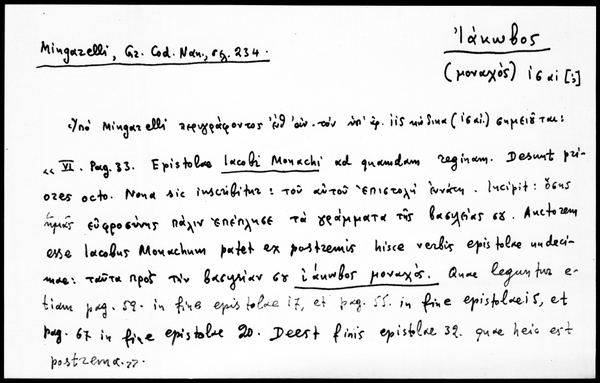 Mingarelli, Gr. Cod. Nan., σελ. 234.
Ἰάκωβος
(μοναχός) ις αἰ [;]
Ὑπό Mingarelli περιγράφοντος τόν ὑπ' ἀρ. κώδικα (ις αἰ.) σημειοῦται:
«VI. Pag. 33. Epistolae Iacobi Monachi ad quamdam reginam. Desunt pri-
ores octo. Nona sic inscribitur: τοῦ αὐτοῦ ἐπιστολὴ ἐνάτη. Incipit: ὅσης
ἡμᾶς εὐφροσύνης πάλιν ἐπέπλησε τὰ γράμματα τῆς βασιλείας σου. Auctorem
esse Iacobum Monachum patet ex postremis hisce verbis epistolae undeci-
mae: ταῦτα πρὸς τὴν βασιλείαν σου ἰάκωβος μοναχός. Quae leguntur e-
tiam pag. 52. in fine epistolae 17, et pag. 55. in fine epistolae 15, et
pag. 67 in fine epistolae 20. Deest finis epistolae 32. quae heic est
postrema.»